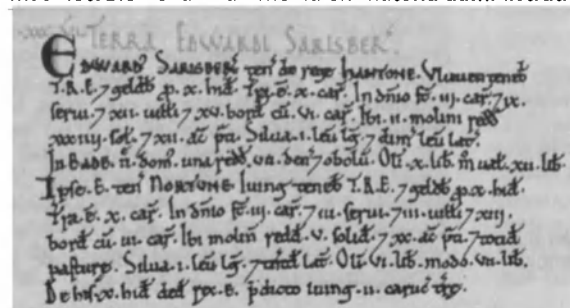 TERRA EDWARDI SARISBER.
EDWARD SARISBER. ten de rege HANTONE. Vluuen teneb
T.R.E. 7 geldb p. x. hid. Tra. ē. x. car. In dnio st. iij. car. 7 ix.
serui. 7 xii. uilli 7 xv. bord cū. vi. car. Ibi. ii. molini redd
sol. 7 xii. ac pti. Silua. i. leu lg. 7 dim leu lat.
In BADE. ii. dom. una redd. vii. den 7 obolū. Olī. x. lib. m ual. xii. lib.
Ipse. E. ten NORTUNE. Iuing teneb T.R.E. 7 geldb. p. x. hid.
Tra. ē. x. car. In dnio st. iij. car. 7 iii. serui. 7 iii. uilli 7 xiij.
bord cū. iii. car. Ibi molin redd. v. solid. 7 xx. ac pti. 7
pasture. Silua. i. leu lg. 7 lat. Olī. vi. lib. modo. vii. lib.
De his. x. hid ded rex. E. pdicto Iuing. ii. caruc tre.